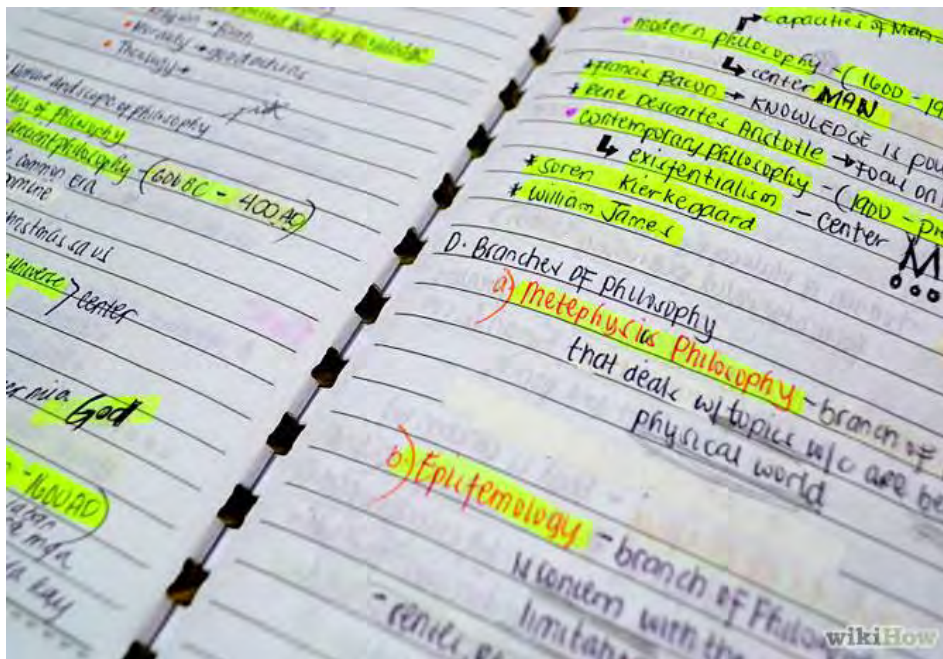 Religion → faith
Morality → good actions
Theology →
Nature and scope of philosophy
of philosophy
ancient philosophy (600 BC - 400 AD)
common era
christmas sa us
universe > center
God
- 1600 AD)
mga
kay
capacities of Man
modern philosophy - (1600 - 19
↳ center MAN
* Francis Bacon → KNOWLEDGE is pow
* Rene Descartes Aristotle → Focus on
contemporary philosophy - (1900 - pre
↳ existentialism - center
* Soren Kierkegaard
* William James
D. Branches of philosophy
a) Metephysics Philosophy - branch of
that deals w/ topics w/c are be
physical world
b) Epistemology - branch of Philoso
N concern with the
limitat
- center
wikiHow